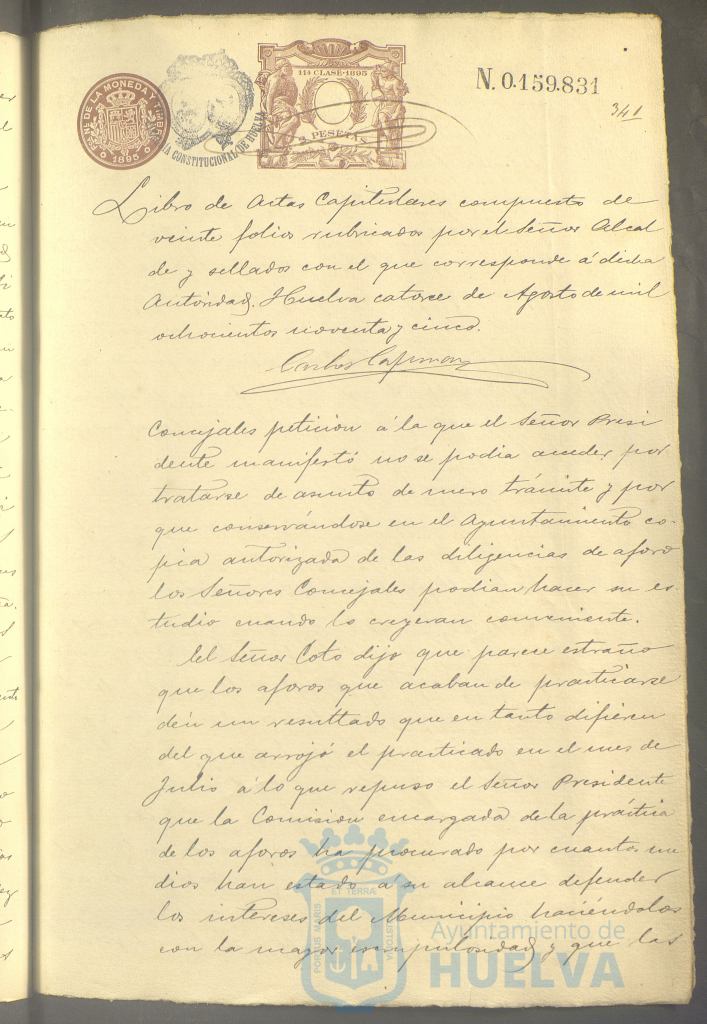 Fca. Nl. DE LA MONEDA Y TIMBRE
1895
ALCALDIA CONSTITUCIONAL DE HUELVA
11ª CLASE-1895
PESETAS
N. 0.159.831
341
Libro de Actas Capitulares compuesto de
veinte folios rubricados por el Señor Alcal
de y sellados con el que corresponde á dicha
Autoridad. Huelva catorce de Agosto de mil
ochocientos noventa y cinco.
Concejales petición á la que el Señor Presi
dente manifestó no se podia acceder por
tratarse de asunto de mero trámite y por
que conservándose en el Ayuntamiento co-
pia autorizada de las diligencias de aforo
los Señores Concejales podian hacer su es-
tudio cuando lo creyeran conveniente.
El Señor Coto dijo que parece estraño
que los aforos que acaban de practicarse
den un resultado que en tanto difieren
del que arrojó el practicado en el mes de
Julio á lo que repuso el Señor Presidente
que la Comisión encargada de la práctica
de los aforos ha procurado por cuantos me
dios han estado a su alcance defender
los intereses del Municipio haciéndolos
con la mayor escrupulosidad y que las
PORTUS MARIS
ET TERRÆ
CUSTODIA
Ayuntamiento de
HUELVA